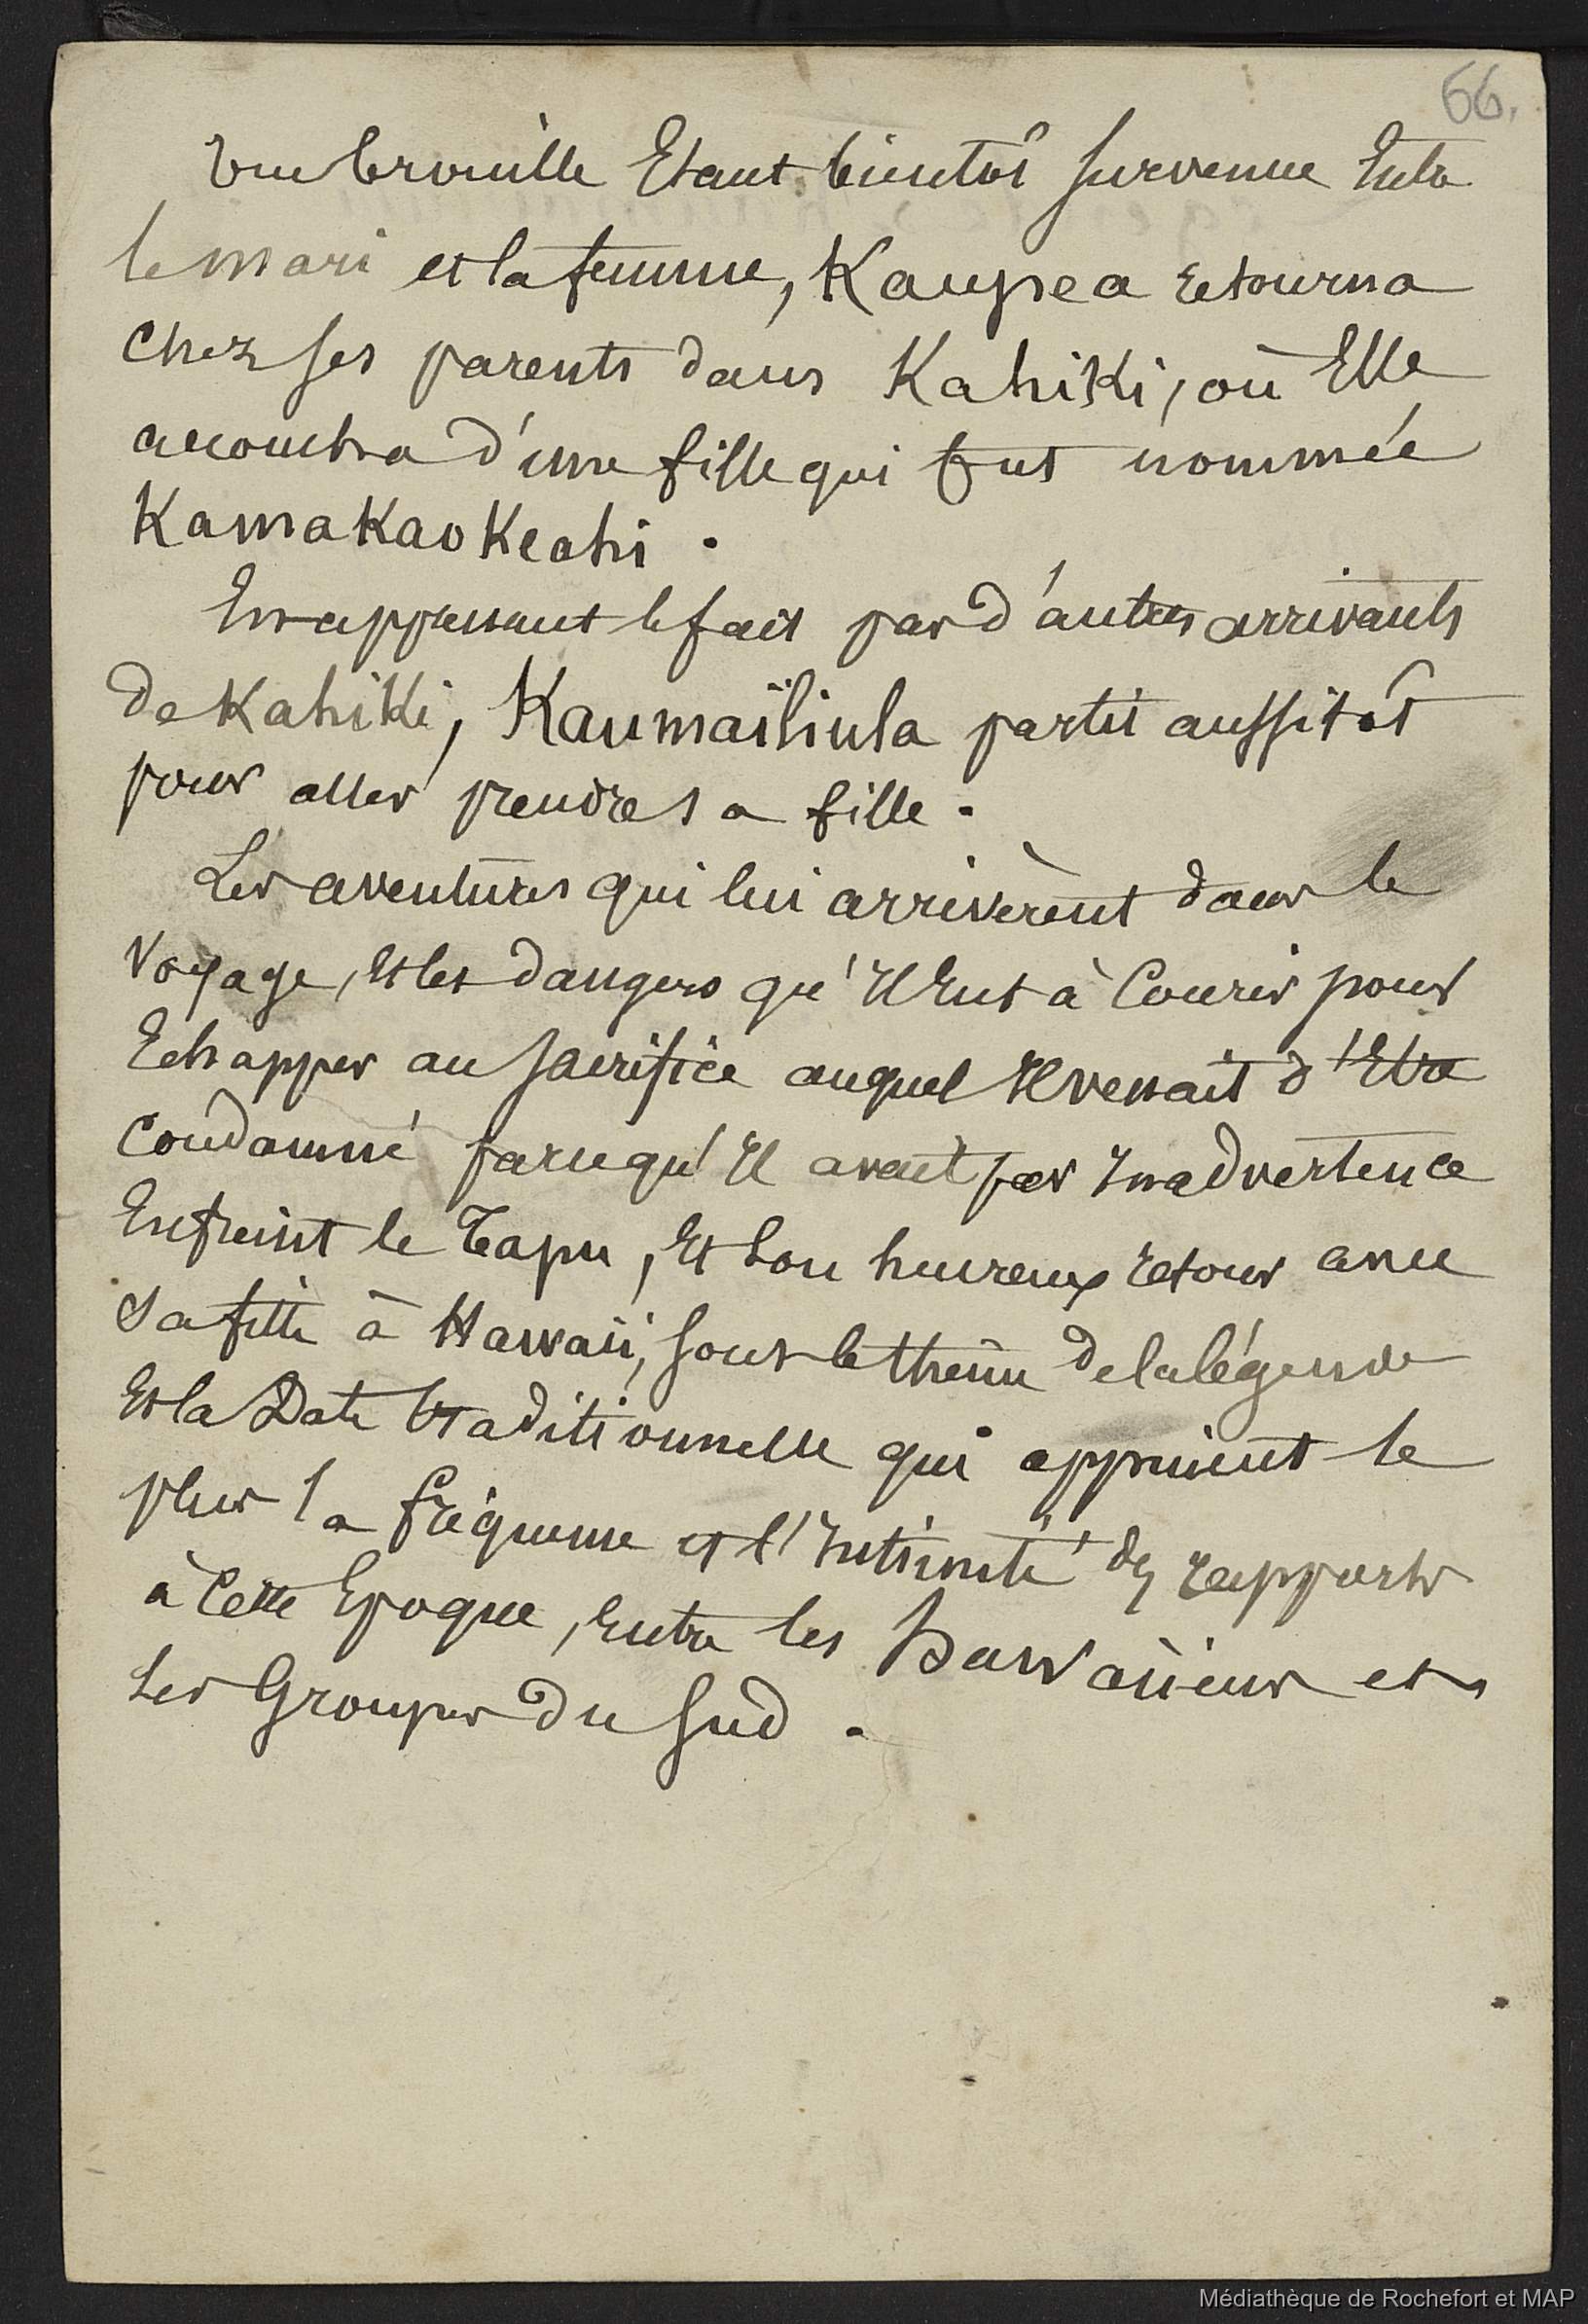 66.
Une brouille Etant bientôt survenue Entre
le mari et la femme, Kaupea retourna
chez ses parents dans Kahiki, où Elle
accoucha d'une fille qui fut nommée
Kamakaokeahi.
En apprenant le fait par d'autres arrivants
de Kahiki, Kaumaïliula partit aussitôt
pour aller prendre sa fille.
Les aventures qui lui arrivèrent dans le
voyage, Et les dangers qu'Il Eut à Courir pour
Echapper au sacrifice auquel Il venait d'Etre
Condamné parcequ'Il avait par Inadvertence
Enfreint le Tapu, Et son heureux retour avec
sa fille à Hawaii, sont le thême de la légende
Et la Date traditionnelle qui appuient le
plus la fréquence et l'Intimité des rapports
à Cette Epoque, Entre les Hawaïiens et
les Groupes du Sud.
Médiathèque de Rochefort et MAP